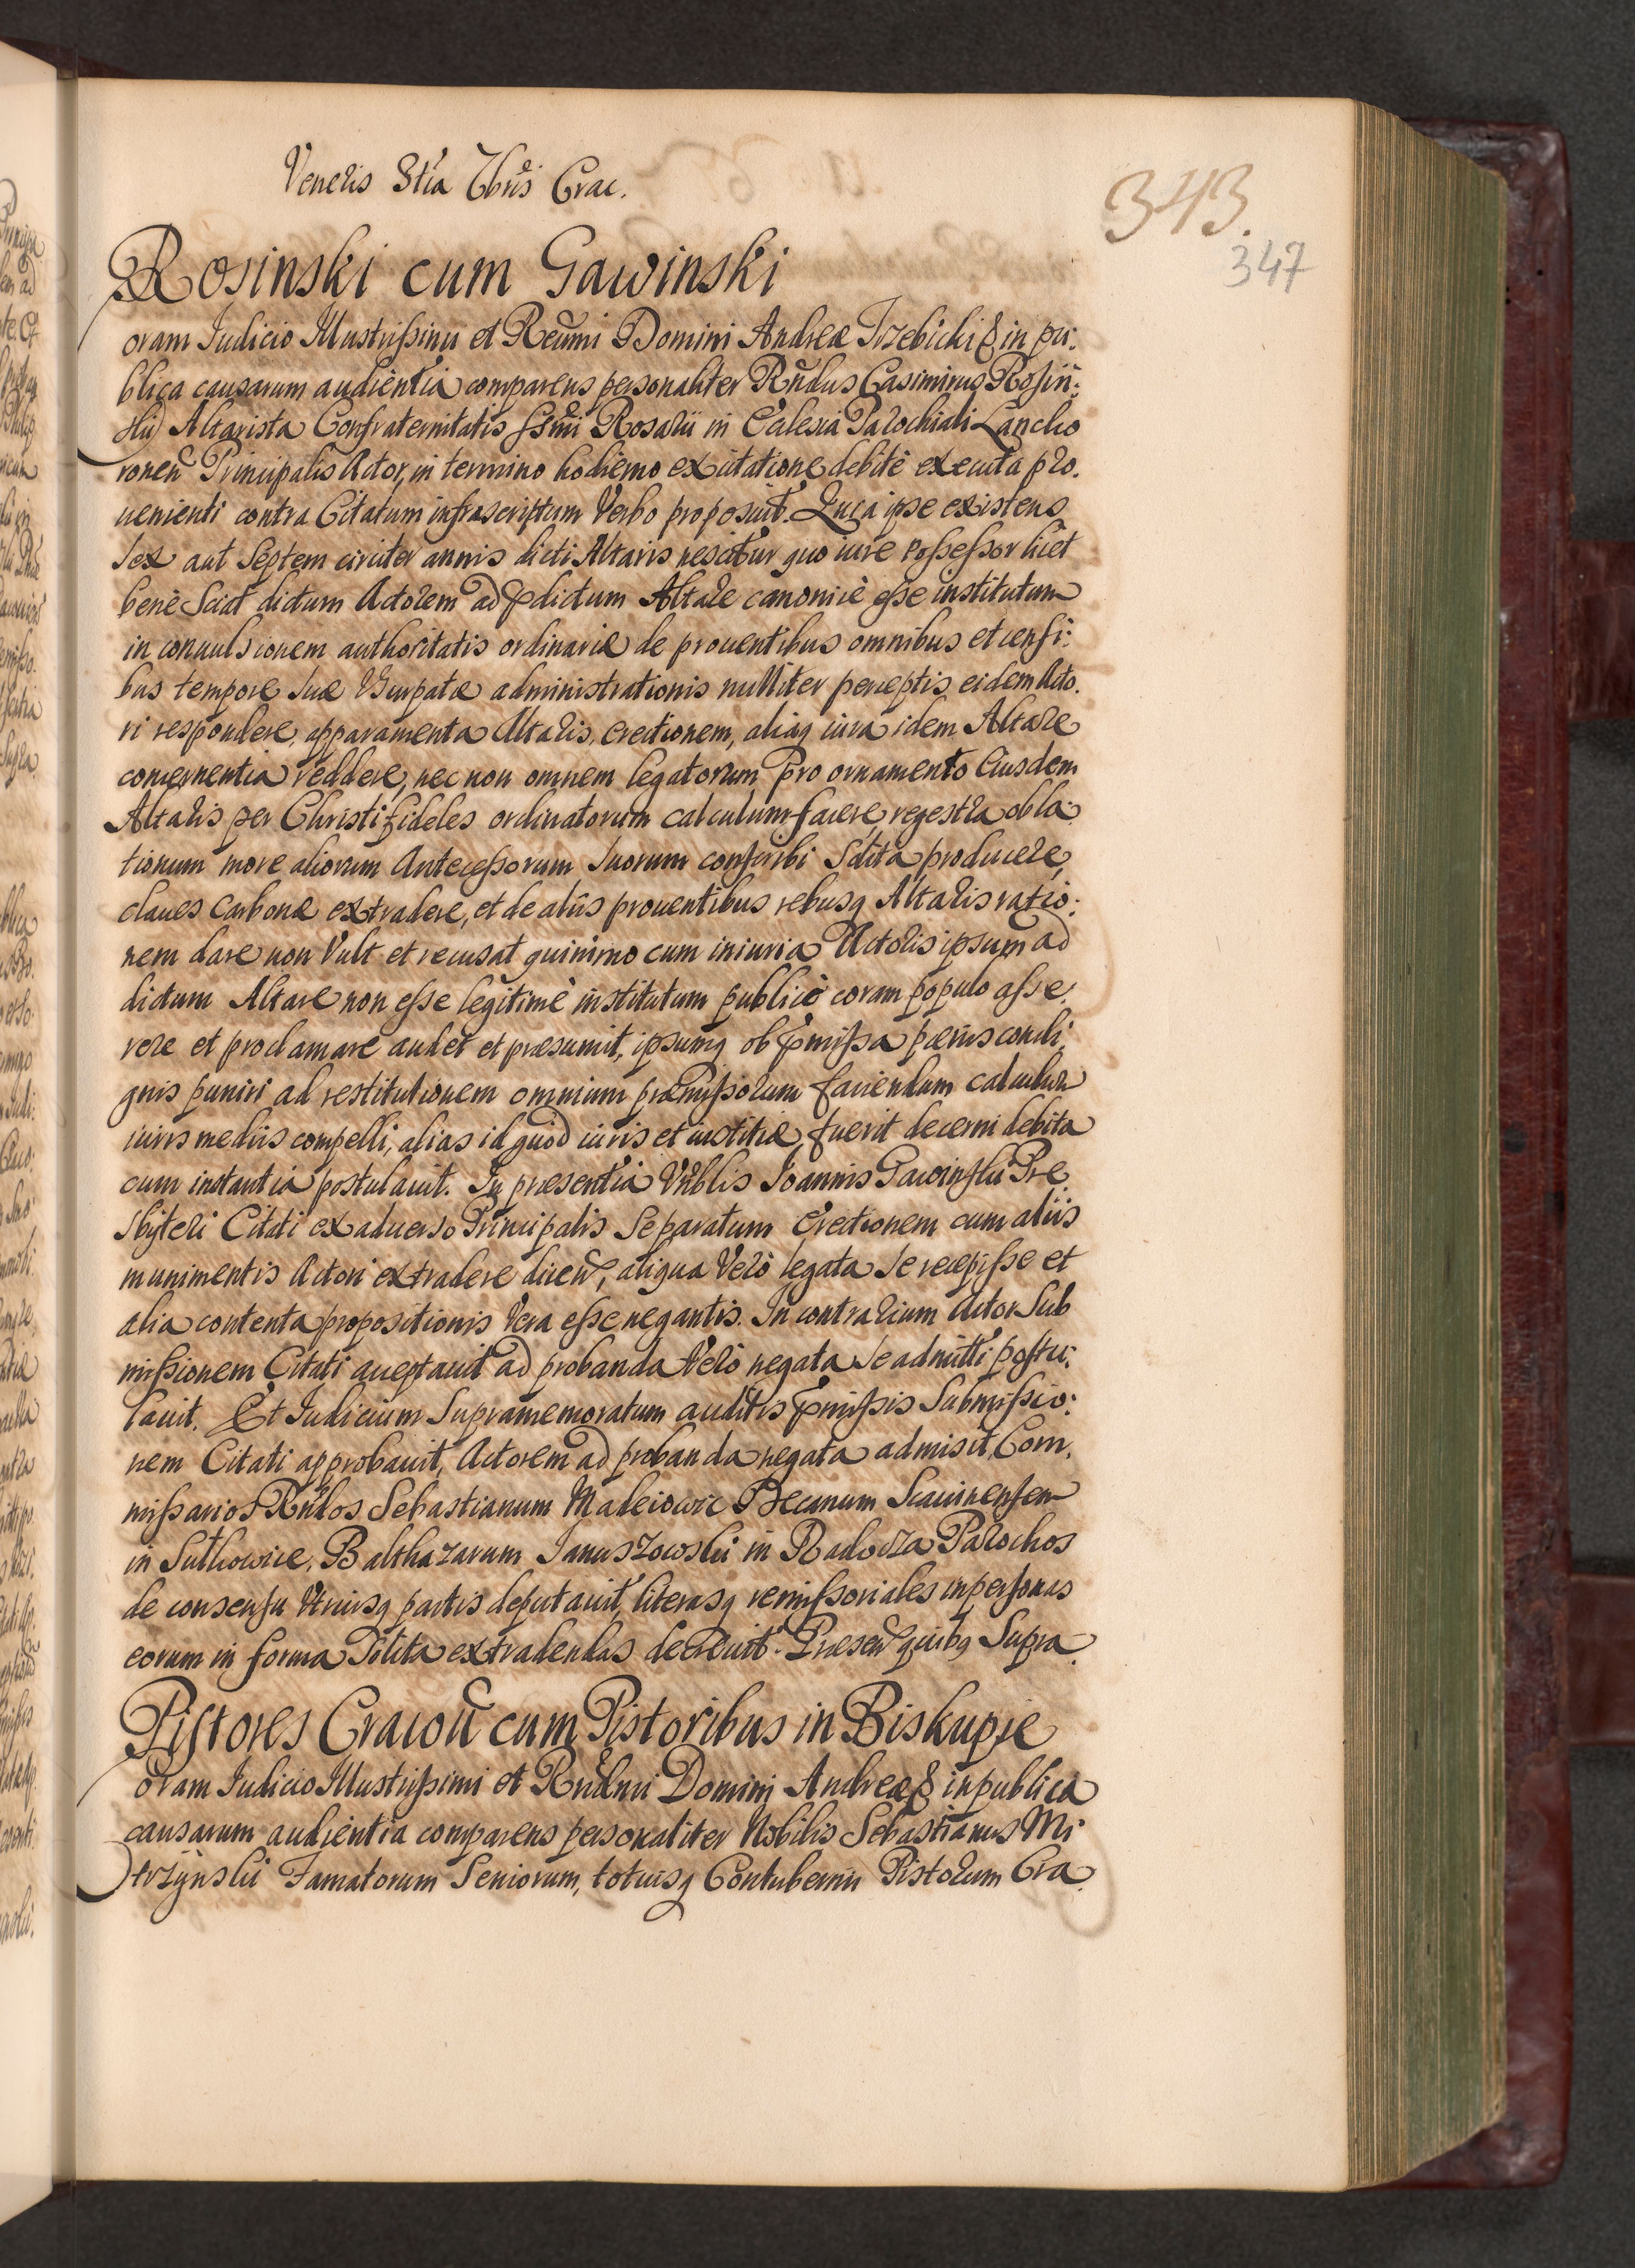 Veneris 3tia Xbris Crac.
343.
347
Rosinski cum Gawinski
Coram Judicio Illustrissimi et Reumi Domini Andreæ Trzebicki & in pu:
blica causarum audientia comparens personaliter Rndus Casimirus Rosin:
ski Altarista Confraternitatis SSmi Rosarii in Ecclesia Parochiali Lanclo
ronen Principalis Actor, in termino hodierno ex citatione debitè executa pro.
uenienti contra Citatum infrascriptum Verbo proposuit. Quia ipse existens
sex aut septem circiter annis dicti Altaris nescitur quo iure possessor licet
benè sciat dictum Actorem ad pdictum Altare canonicè esse institutum
in conuulsionem authoritatis ordinariæ de prouentibus omnibus et censi:
bus tempore suæ Vsurpatæ administrationis nulliter perceptis eidem Acto.
ri respondere, apparamenta Altaris, erectionem, aliaq iura idem Altare
concernentia reddere, nec non omnem legatorum pro ornamento Eiusdem
Altaris per Christi fideles ordinatorum calculum facere, regestra obla:
tionum more aliorum Antecessorum suorum conscribi solita producere,
claues Carbonæ extradere, et de aliis prouentibus rebusq Altaris ratio:
nem dare non Vult et recusat quinimo cum iniuria Actoris ipsum ad
dictum Altare non esse legitimè institutum publicè coram populo asse.
rere et proclamare audet et præsumit, ipsumq ob pmissa pænis condi.
gnis puniri ad restitutionem omnium præmissorum faciendum calculum
iuris mediis compelli, alias id quod iuris et iustitiæ fuerit decerni debita
cum instantia postulauit. In præsentia Vnblis Joannis Gawinski Pre.
sbyteri Citati ex aduerso Principalis se paratum Erectionem cum aliis
munimentis Actori extradere dicen, aliqua Verò legata se recepisse et
alia contenta propositionis Vera esse negantis. In contrarium Actor Sub
missionem Citati acceptauit ad probanda Verò negata se admitti postu:
lauit. Et Judicium Supramemoratum auditis pmissis Submissio:
nem Citati approbauit, Actorem ad probanda negata admisit, Com.
missarios Rndos Sebastianum Madeiowic Decanum Scauinensem
in Sulkowice, Balthazarum Januszowski in Radocza Parochos
de consensu Vtriusq partis deputauit, literasq remissoriales in personas
eorum in forma solita extradendas decreuit. Præsen quibq Supra.
Pistores Cracou cum Pistoribus in Biskupie
Coram Judicio Illustrissimi et Rndmi Domini Andreæ & in publica
causarum audientia comparens personaliter Nobilis Sebastianus Mi
trzynski Famatorum Seniorum, totiusq Contubernii Pistorum Cra.